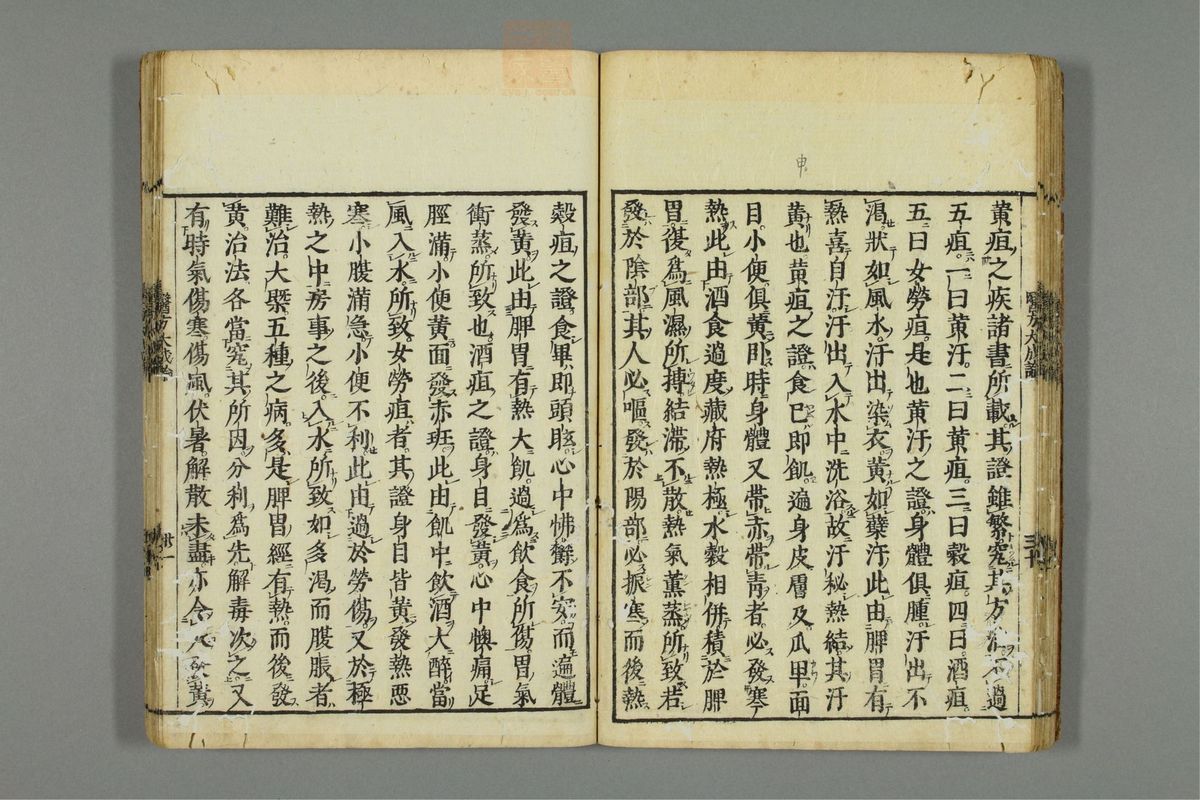 申
黄疸之疾諸書所載其證雖繁究其方論不過
五疸一曰黄汗二曰黄疸三曰穀疸四曰酒疸
五曰女勞疸是也黄汗之證身體俱腫汗出不
渇狀如風水汗出染衣黄如蘗汗此由脾胃有
熱喜自汗汗出入水中洗浴故汗秘熱結其汗
黄也黄疸之證食已即飢遍身皮膚及瓜甲面
目小便俱黄卧時身體又帶赤帶青者必發寒
熱此由酒食過度藏府熱極水穀相併積於脾
胃復爲風濕所搏結滯不散熱氣薫蒸所致若
發於陰部其人必嘔發於陽部必振寒而後熱
穀疸之證食畢即頭眩心中怫欝不安而遍體
發黄此由脾胃有熱大飢過爲飲食所傷胃氣
衝蒸所致也酒疸之證身目發黄心中懊痛足
脛滿小便黄面發赤班此由飢中飲酒大醉當
風入水所致女勞疸者其證身目皆黄發熱悪
寒小腹滿急小便不利此由過於勞傷又於極
熱之中房事之後入水所致如多渇而腹脹者
難治大槩五種之病多是脾胃經有熱而後發
黄治法各當究其所因分利爲先解毒次之又
有時氣傷寒傷風伏暑解散未盡亦令人發黄
醫方大成論
三十
醫方大成論
丗一